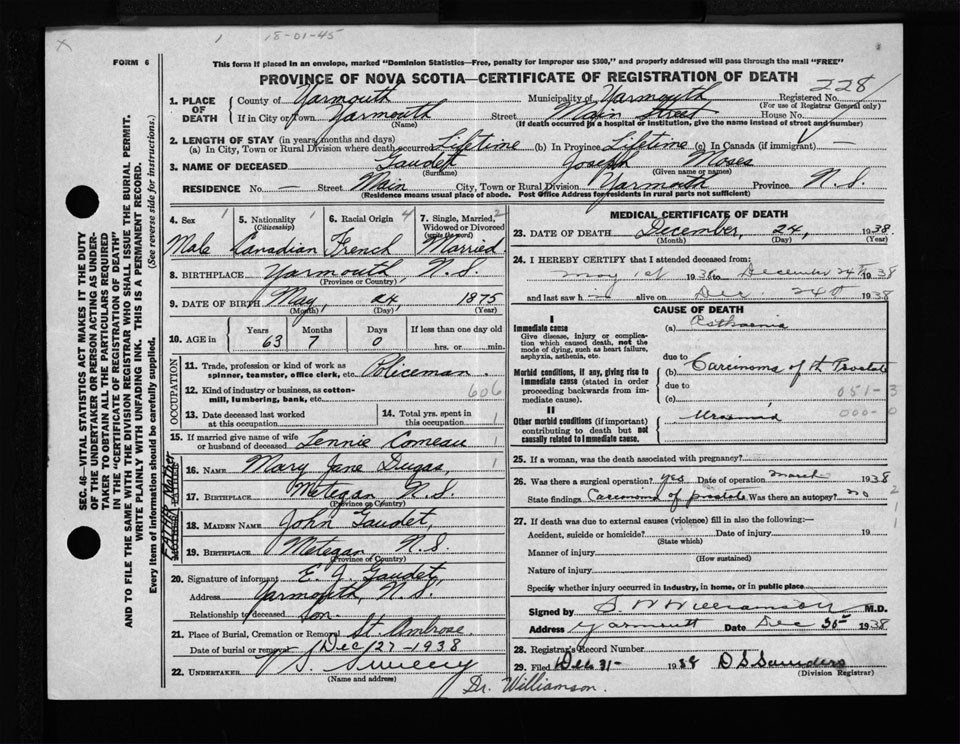 X
1
18-01-45
FORM 6
This form if placed in an envelope, marked "Dominion Statistics—Free, penalty for improper use $300," and properly addressed will pass through the mail "FREE"
PROVINCE OF NOVA SCOTIA—CERTIFICATE OF REGISTRATION OF DEATH
228
1. PLACE OF DEATH { County of Yarmouth Municipality of Yarmouth Registered No.
(For use of Registrar General only)
If in City or Town Yarmouth Street Main Street House No.
(Name) (If death occurred in a hospital or institution, give the name instead of street and number)
2. LENGTH OF STAY (in years, months and days)
(a) In City, Town or Rural Division where death occurred Lifetime (b) In Province Lifetime (c) In Canada (if immigrant) —
3. NAME OF DECEASED Gaudet Joseph Moses
(Surname) (Given name or names)
RESIDENCE No. — Street Main City, Town or Rural Division Yarmouth Province N.S.
(Residence means usual place of abode. Post Office Address for residents in rural parts not sufficient)
SEC. 46—VITAL STATISTICS ACT MAKES IT THE DUTY
OF THE UNDERTAKER OR PERSON ACTING AS UNDER-
TAKER TO OBTAIN ALL THE PARTICULARS REQUIRED
IN THE "CERTIFICATE OF REGISTRATION OF DEATH"
AND TO FILE THE SAME WITH THE DIVISION REGISTRAR WHO SHALL ISSUE THE BURIAL PERMIT.
WRITE PLAINLY WITH UNFADING INK. THIS IS A PERMANENT RECORD.
Every item of information should be carefully supplied. (See reverse side for instructions.)
4. Sex 1 5. Nationality 1 6. Racial Origin 4 7. Single, Married, 2
(Citizenship) Widowed or Divorced
(write the word)
Male Canadian French Married
8. BIRTHPLACE Yarmouth, N.S.
(Province or Country)
9. DATE OF BIRTH May, 24, 1875
(Month) (Day) (Year)
10. AGE in { Years Months Days If less than one day old
63 7 0 hrs. or min.
OCCUPATION
11. Trade, profession or kind of work as
spinner, teamster, office clerk, etc. Policeman.
12. Kind of industry or business, as cotton-
mill, lumbering, bank, etc. 606
13. Date deceased last worked
at this occupation
14. Total yrs. spent in
this occupation 1
15. If married give name of wife
or husband of deceased Lennie Comeau 1
Father Mother
16. NAME Mary Jane Dugas, 1
17. BIRTHPLACE Metegan N.S.
(Province or Country)
18. MAIDEN NAME John Gaudet,
19. BIRTHPLACE Metegan, N.S.
(Province or Country)
20. Signature of informant E. J. Gaudet,
Address Yarmouth, N.S.
Relationship to deceased Son.
21. Place of Burial, Cremation or Removal St. Ambrose
Date of burial or removal Dec 27-1938
22. UNDERTAKER Sweeny
(Name and address)
MEDICAL CERTIFICATE OF DEATH
23. DATE OF DEATH December, 24, 1938
(Month) (Day) (Year)
24. I HEREBY CERTIFY that I attended deceased from:
May 1st 1938 to December 24th 1938
and last saw him alive on Dec. 24th 1938
CAUSE OF DEATH
I
Immediate cause (a) Asthaenia
Give disease, injury or complica-
tion which caused death, not the
mode of dying, such as heart failure,
asphyxia, asthenia, etc. due to
Morbid conditions, if any, giving rise to
immediate cause (stated in order
proceeding backwards from im-
mediate cause).
(b) Carcinoma of the Prostate
due to 051-3
(c) 000-0
II
Other morbid conditions (if important)
contributing to death but not
causally related to immediate cause.
25. If a woman, was the death associated with pregnancy?
26. Was there a surgical operation? yes Date of operation March 1938
State findings Carcinoma of prostate Was there an autopsy? no 2
27. If death was due to external causes (violence) fill in also the following:— 1
Accident, suicide or homicide? Date of injury 19
(State which)
Manner of injury
(How sustained)
Nature of injury
Specify whether injury occurred in industry, in home, or in public place
Signed by S W Williamson M.D.
Address Yarmouth Date Dec 30th 1938
28. Registrar's Record Number
29. Filed Dec 31- 1938 D S Saunders
(Division Registrar)
Dr. Williamson.